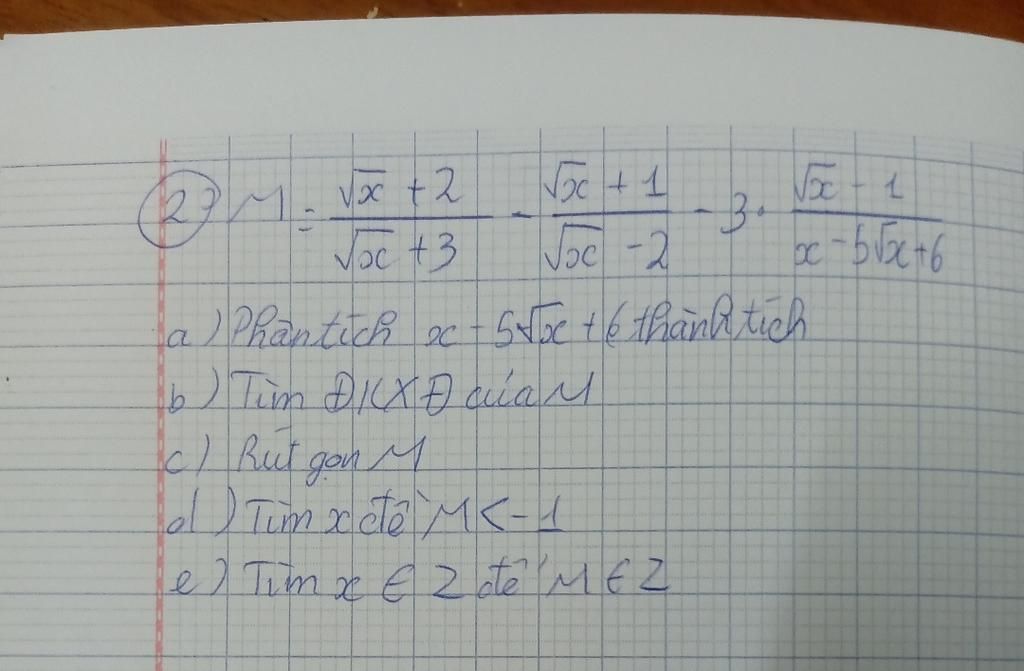 2) M = \frac{\sqrt{x} + 2}{\sqrt{x} + 3} - \frac{\sqrt{x} + 1}{\sqrt{x} - 2} - 3 \cdot \frac{\sqrt{x} - 1}{x - 5\sqrt{x} + 6}
a) Phân tích x - 5√x + 6 thành tích
b) Tìm ĐKXĐ của M
c) Rút gọn M
d) Tìm x để M < -1
e) Tìm x ∈ Z để M ∈ Z